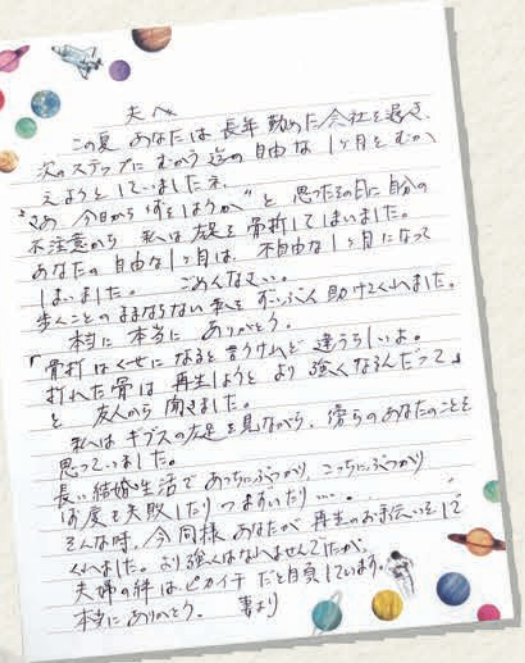 夫へ
この夏 あなたは 長年 勤めた 会社を 退き、
次のステップに むかう 迄の 自由な 1ヶ月を むか
えようと していましたネ。
"さあ 今日から 何をしようか" と 思ったその日に 自分の
不注意から 私は 左足を 骨折して しまいました。
あなたの 自由な 1ヶ月は、 不自由な 1ヶ月に なって
しまいました。 ごめんなさい。
歩くことの ままならない 私を ずいぶん 助けてくれました。
本当に 本当に ありがとう。
「骨折は くせに なると 言うけれど 違うらしいよ。
折れた 骨は 再生しようと より 強く なるんだって」
と 友人から 聞きました。
私は ギブスの 左足を 見ながら、傍らの あなたのことを
思っていました。
長い 結婚生活で あっちにぶつかり、こっちにぶつかり
何度も 失敗したり つまずいたり…。
そんな時、今回同様 あなたが 再生の お手伝いをして
くれました。より強くは なれませんでしたが、
夫婦の絆は、ピカイチ だと自負しています。
本当に ありがとう。 妻より